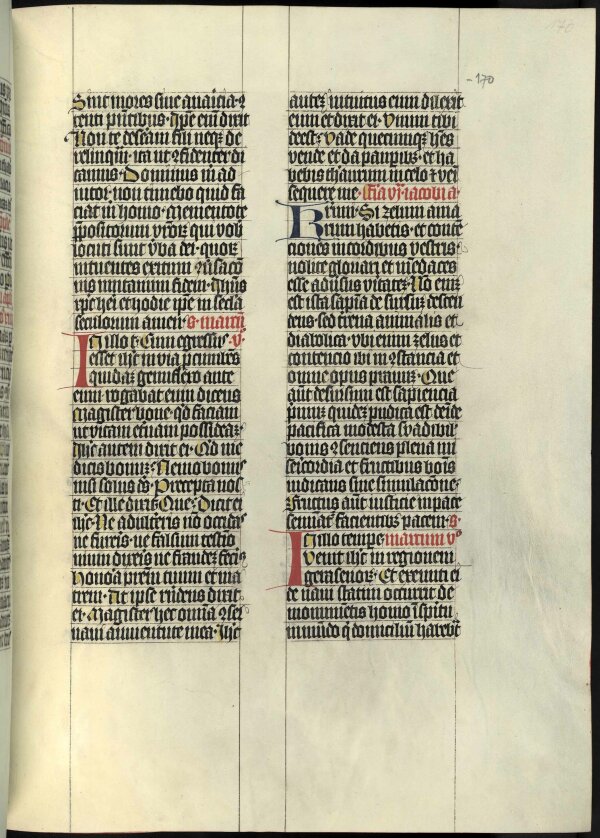 Sint mores sine auaricia ɔ
tenti pñtibus · Ip̅e em̄ dixit
Non te deseram n̄ neqꝫ de
relinquā · ita ut ɔfidenter di
camus · Dominus m̄ ad
iutor · non timebo quid fa
ciat m̄ homo · Mementote
p̄positorum vr̄oꝝ qui vob̄
locuti sunt v̄ba dei · quoꝝ
intuentes exitum ɔu̓sac̄o
nis imitamini fidem · Ih̄us
xp̄c heri et hodie ip̄e in sc̄la
seculorum amen · S · marcū ·
In illo t̄ · Cum egressus · vi
esset ih̄c in via p̄currēs
quidaꝫ genuflexo ante
eum rogabat eum dicens
Magister bone qd̓ faciam
ut vitam et̓nam possideaꝫ ·
Ih̄c autem dixit ei · Qd̓ me
dicis bonuꝫ · Nemo bonus
nisi solus ds̄ · Precepta nos
ti · Et ille dixit · Que · Dixit ei
ih̄c · Ne adulteris nō occidas
ne fureris · ne falsum testio
nium dixeris ne fraudeꝫ fec̄is
honora pr̄em tuum et ma
trem · At ip̄se r̄ndens dixit
ei · Magister hec om̄ia ɔser
uaui a iuuentute mea · Ih̄c
auteꝫ intuitus eum dilexit
eum et dixit ei · Vnum tibi
deest · vade quecumqꝫ hēs
vende et da paupibꝫ · et ha
bebis thaurum in celo ⁊ veī
sequere me · fr̄ia vi · iacobi a ·
Krimi · Si zelum ama
rum habetis · et conten
tiones in cordibus vestris
nolite gloriari et mēdaces
esse adu̓sus v̓itateꝫ · Nō enī
est ista sapīa de sursum descen
dens · sed t̓rena animalis et
diabolica · vbi enim zelus et
contencio ibi inɔstancia et
omne opus prauuꝫ · Que
aūt desursum est sapiencia
pimuꝫ quidez pudica est deīde
pacifica modesta suadibil̓
bonis ɔsenciens plena mi
sericordia et fructibus bōis
iudicans sine simulacōne ·
Fructus aūt iusticie in pace
seminat̓ facientibꝫ pacem · S ·
In illo tempe · marcum v
Venit ih̄c in regionem
gerasenoꝝ · Et exeunti ei
de naui statim occurrit de
monumētis homo ī sp̄iritu
inmūdo q̄ domiciliū habebat
-170
170